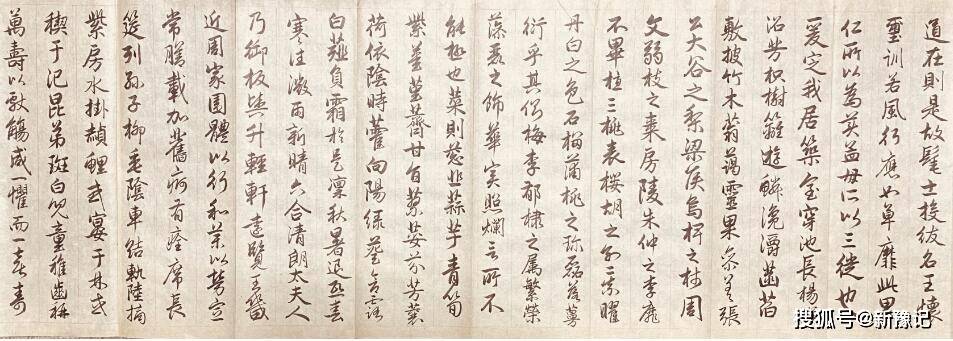 道在則是故髦士投紱名王懷
璽訓若風行應如草靡此里
仁所以為美孟母所以三徙也
爰定我居築室穿池長楊
沼芳枳樹籬遊鱗瀺灂菡萏
敷披竹木蓊藹靈果參差張
公大谷之梨梁侯烏椑之柿周
文弱枝之棗房陵朱仲之李靡
不畢植三桃表櫻胡之別二柰曜
丹白之色石榴蒲桃之珍磊落蔓
衍乎其側梅李郁棣之屬繁榮
藻麗之飾華實照爛言所不
能極也菜則蔥韭蒜芋青筍
紫薑堇薺甘旨蓼荾芬芳蘘
荷依陰時藿向陽綠葵含露
白薤負霜於是凜秋暑退熙春
寒往微雨新晴六合清朗太夫人
乃御板輿升輕軒遠覽王畿
近周家園體以行和藥以勞宣
常膳載加舊痾有痊席長
筵列孫子柳垂陰車結軌陸摘
紫房水掛赬鯉或宴于林或
禊于汜昆弟斑白兒童稚齒稱
萬壽以獻觴咸一懼而一喜壽
搜狐号@新豫记